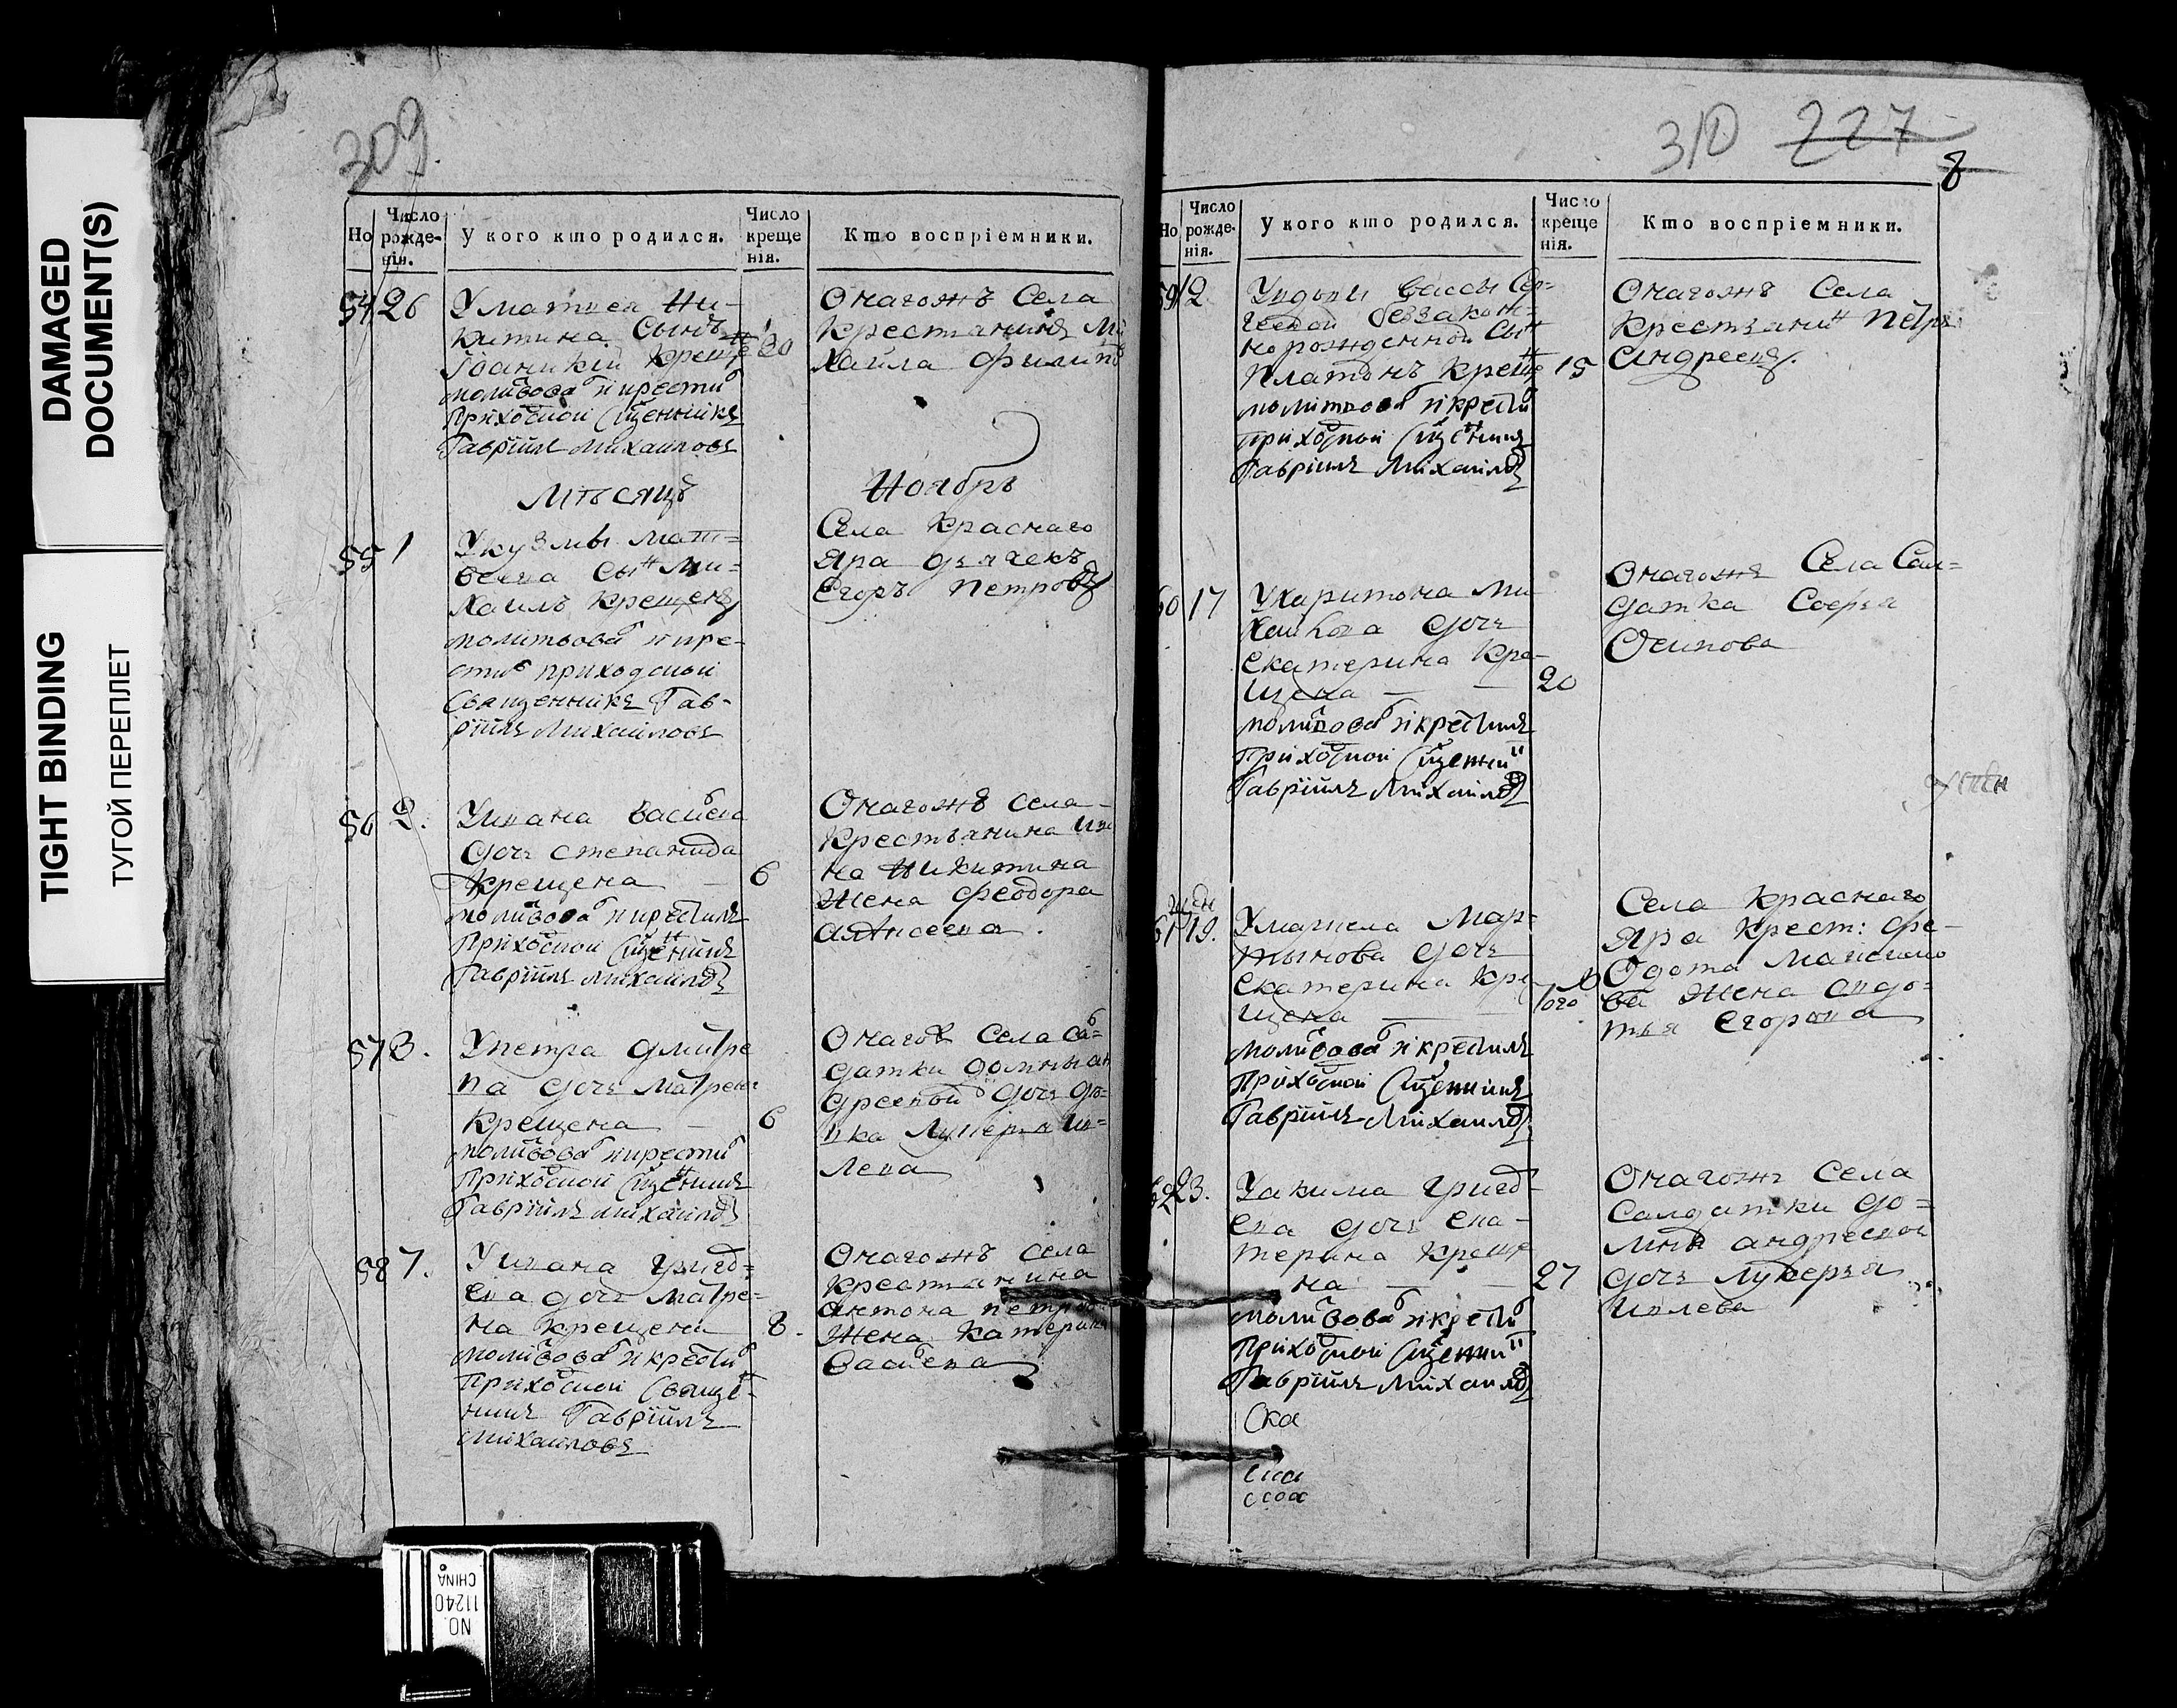 DAMAGED
DOCUMENT(S)
TIGHT BINDING
ТУГОЙ ПЕРЕПЛЕТ
309
Но
Число рожде- нія.
У кого кто родился.
Число креще нія.
Кто воспріемники.
54 26
У матвея Ни-
китина Сынъ
Іоаникій Креще 30
молитвовал и крестил
Приходской Священникъ
Гавріилъ Михаиловъ
Оначожъ Села
Крестьянинъ Ми
хайла Филипо
Мѣсяцъ Ноябрь
55 1
У кузмы Мат=
веева Сынъ Ми=
хаилъ крещенъ
молитвовал и кре-
стил приходской
Священникъ Гав-
ріилъ Михаиловъ
Села Краснаго
Яра дьячекъ
Егоръ Петровъ
56 2.
У ивана васильева
дочь степанида
крещена — 6
молитвовал и крестилъ
Приходской Священникъ
Гавріилъ Михаиловъ
Оначожъ села
Крестьянина ива
на Никитина
Жена Феодора
алексеева.
57 3.
У петра дмитрe
ва дочь матрена
Крещена — 6
молитвовал и крестил
Приходской Священникъ
Гавріилъ михаиловъ
Оначож Села сол=
датки домны ан
дреевой дочь до=
вка Лукерья Ив=
лева
58 7.
У ивана григор=
ева дочь матре=
на крещена 8.
молитвовал и крестил
Приходской Священ=
никъ Гавріилъ
михаиловъ
Оначожъ села
крестьянина
антона петров
Жена катерина
Васильева
310 227
8
Но
Число рожде- нія.
У кого кто родился.
Число креще нія.
Кто воспріемники.
59 12
У вдовы вассы Сер=
геевой беззакон=
норожденной сынъ
Платонъ креще 15
молитвовал и крестил
приходской Священникъ
Гавріилъ Михаиловъ
Оначожъ Села
Крестьянинъ Петръ
Андреевъ.
60 17
У харитона Ми
хайлова дочь
екатерина кре-
щена — — 20
молитвовал и крестилъ
Приходской Священникъ
Гавріилъ Михаиловъ
Оначожъ Села Сол=
датка Софья
Осипова
61 19.
У маркела Мар=
тынова дочь
екатерина кре
щена — Того
молитвовал и крестилъ
Приходской Священникъ
Гавріилъ Михаиловъ
Села Краснаго
Яра Крест: Фе-
одота Максимо
ва Жена авдо=
тья егорова
62 23.
У акима григор-
ева дочь ека-
терина креще
на — — 27
молитвовал и крестил
Приходской Священникъ
Гавріилъ Михаиловъ
Оначожъ Села
Салдатки до=
мны андреевой
дочь Лукерья
Ивлева
Ска
NO. 11240
CHINA